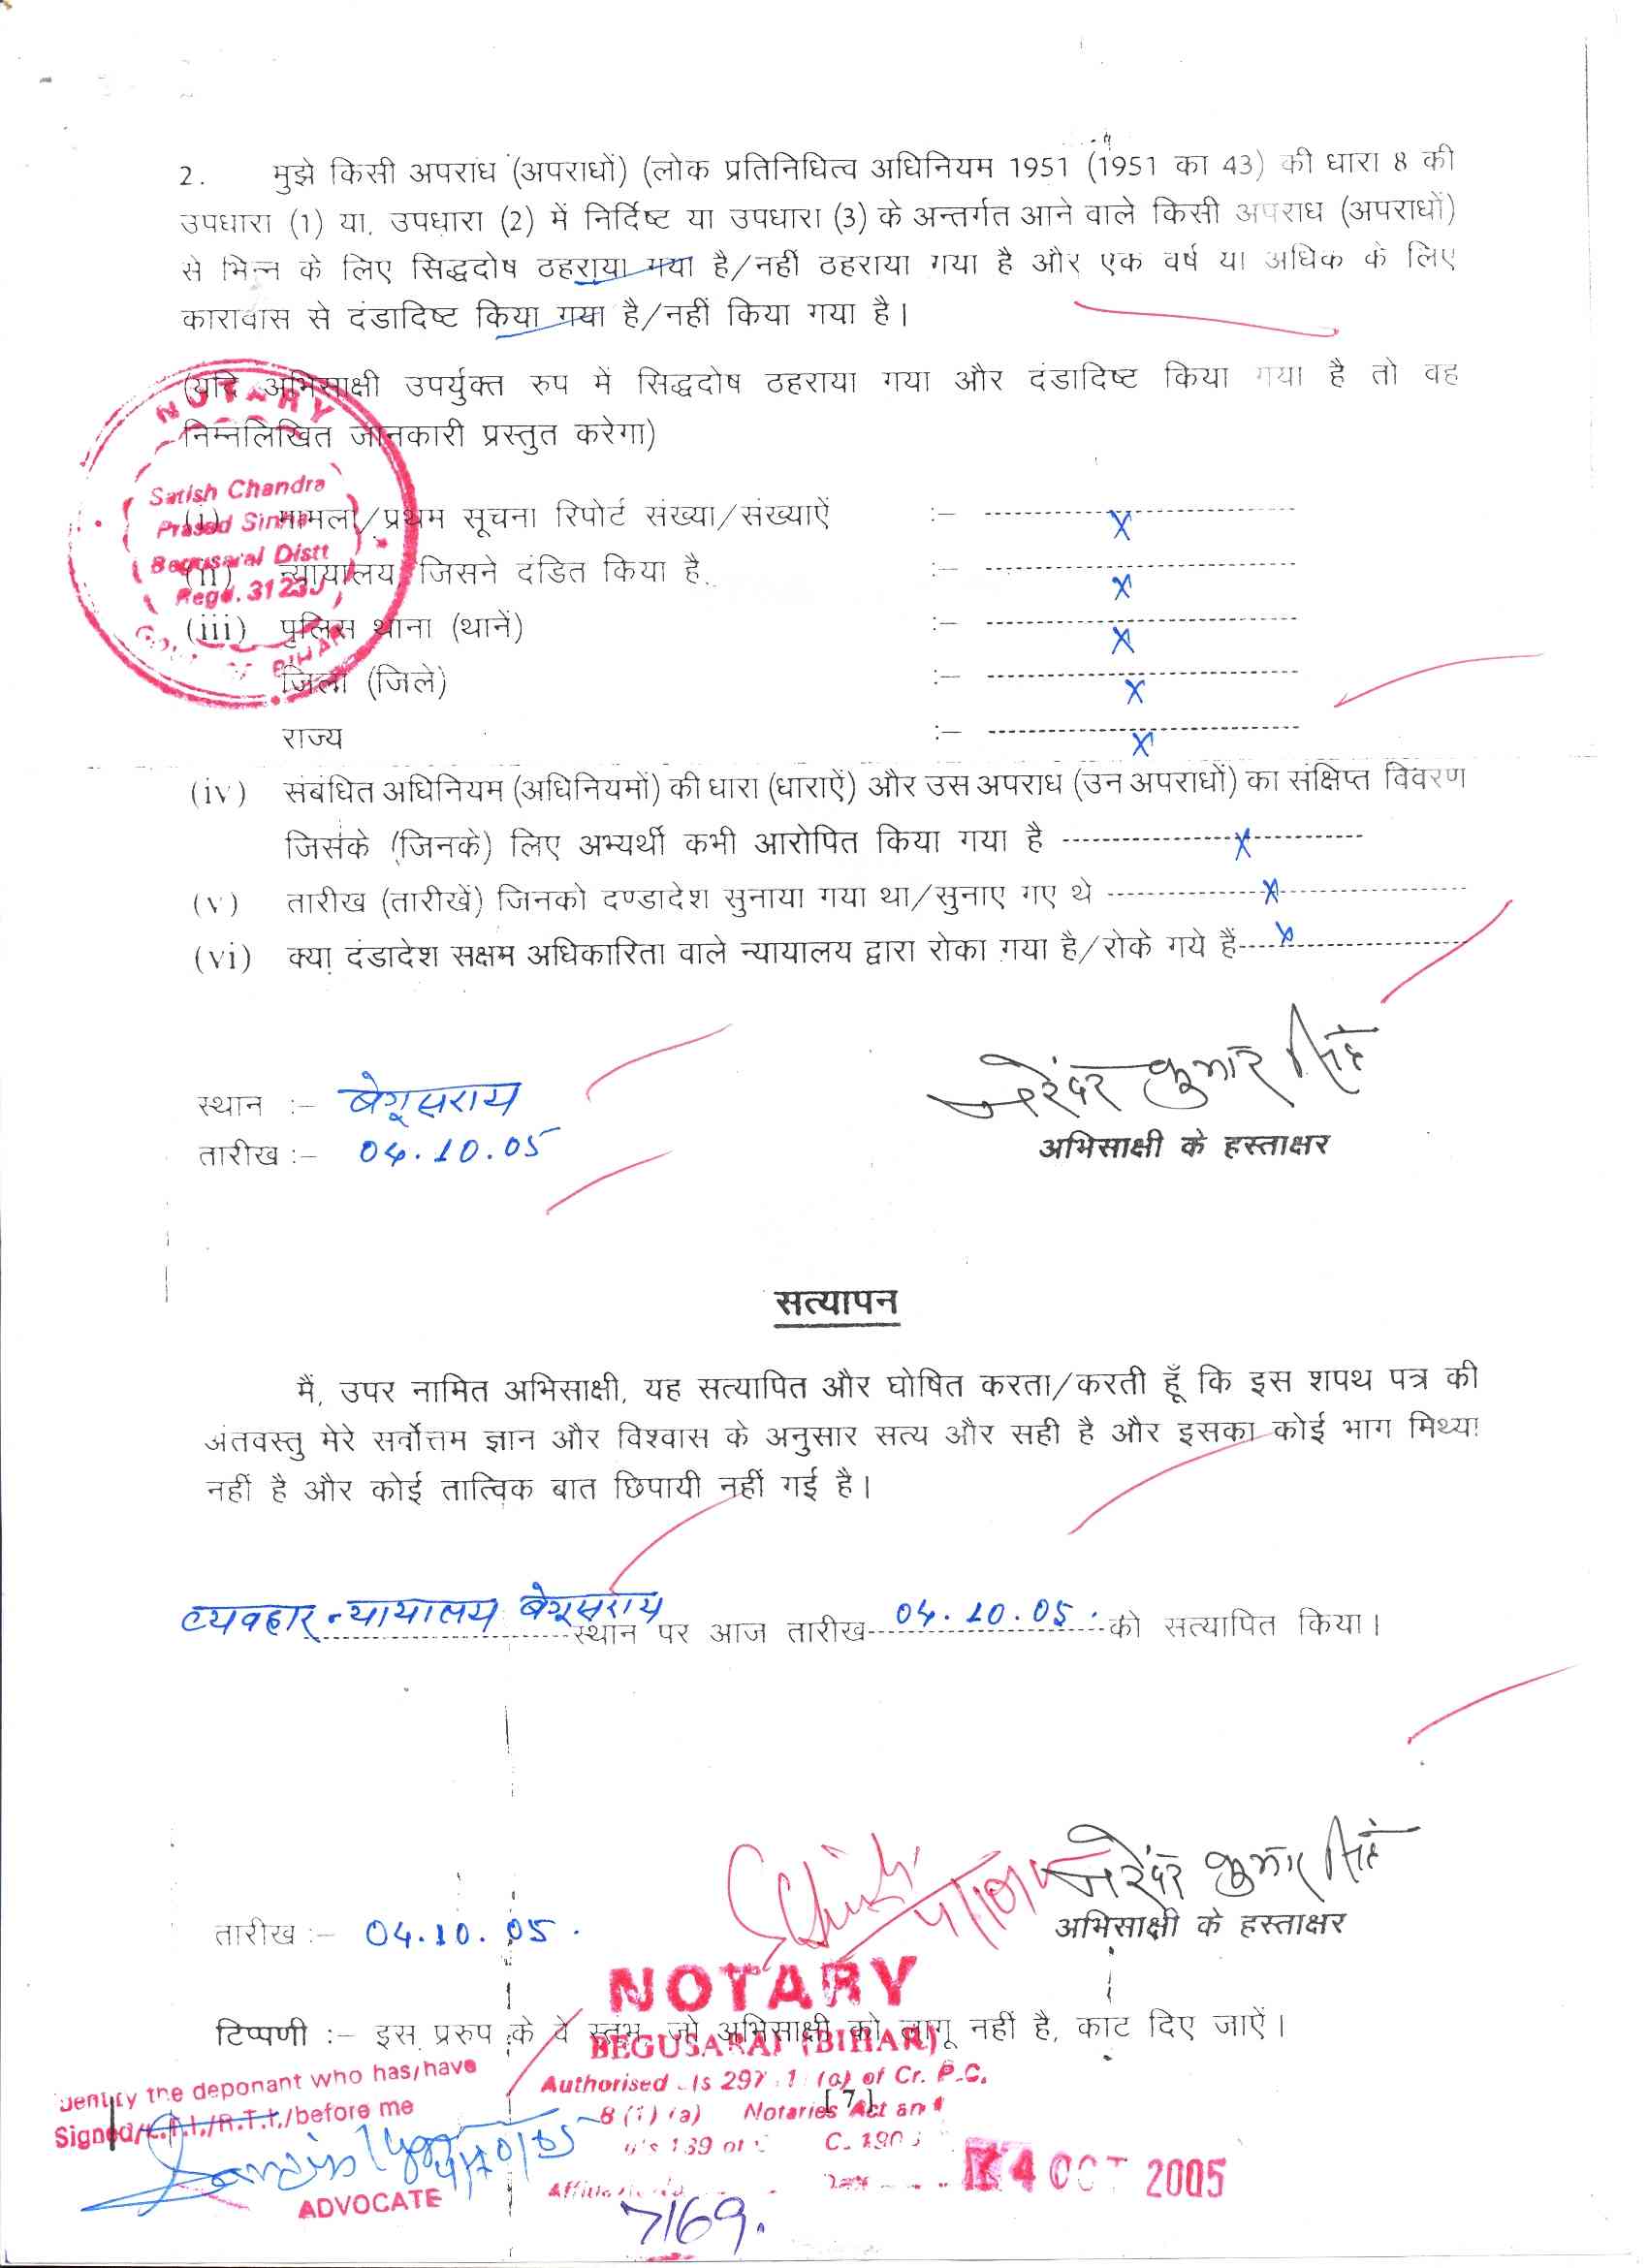 2. मुझे किसी अपराध (अपराधों) (लोक प्रतिनिधित्व अधिनियम 1951 (1951 का 43) की धारा 8 की
उपधारा (1) या, उपधारा (2) में निर्दिष्ट या उपधारा (3) के अन्तर्गत आने वाले किसी अपराध (अपराधों)
से भिन्न के लिए सिद्धदोष ठहराया गया है/नहीं ठहराया गया है और एक वर्ष या अधिक के लिए
कारावास से दंडादिष्ट किया गया है/नहीं किया गया है।
(यदि अभिसाक्षी उपर्युक्त रुप में सिद्धदोष ठहराया गया और दंडादिष्ट किया गया है तो वह
निम्नलिखित जानकारी प्रस्तुत करेगा)
NOTARY
Satish Chandra
Prasad Sinha
Begusarai Distt
Regd. 3123
GOVT BIHAR
(i) मामला/प्रथम सूचना रिपोर्ट संख्या/संख्याऐं :– X
(ii) न्यायालय, जिसने दंडित किया है. :– X
(iii) पुलिस थाना (थानें) :– X
जिला (जिले) :– X
राज्य :– X
(iv) संबंधित अधिनियम (अधिनियमों) की धारा (धाराऐं) और उस अपराध (उन अपराधों) का संक्षिप्त विवरण
जिसके (जिनके) लिए अभ्यर्थी कभी आरोपित किया गया है X
(v) तारीख (तारीखें) जिनको दण्डादेश सुनाया गया था/सुनाए गए थे X
(vi) क्या दंडादेश सक्षम अधिकारिता वाले न्यायालय द्वारा रोका गया है/रोके गये हैं X
नरेंदर कुमार सिंह
स्थान :– बेगूसराय
तारीख :– 04.10.05
अभिसाक्षी के हस्ताक्षर
सत्यापन
मैं, उपर नामित अभिसाक्षी, यह सत्यापित और घोषित करता/करती हूँ कि इस शपथ पत्र की
अंतवस्तु मेरे सर्वोत्तम ज्ञान और विश्वास के अनुसार सत्य और सही है और इसका कोई भाग मिथ्या
नहीं है और कोई तात्विक बात छिपायी नहीं गई है।
व्यवहार न्यायालय बेगूसराय स्थान पर आज तारीख 04.10.05. को सत्यापित किया।
नरेंदर कुमार सिंह
तारीख :– 04.10.05.
अभिसाक्षी के हस्ताक्षर
NOTARY
टिप्पणी :– इस प्ररुप के वे स्तंभ, जो अभिसाक्षी को लागू नहीं है, काट दिए जाऐं।
BEGUSARAI (BIHAR)
Identify the deponant who has/have
Signed/L.T.I./R.T.I./before me
Authorised 297 1 (a) of Cr. P.C.
8 (1) (a) Notaries Act an
[7]
139 C. 190
4 OCT 2005
ADVOCATE
7169.